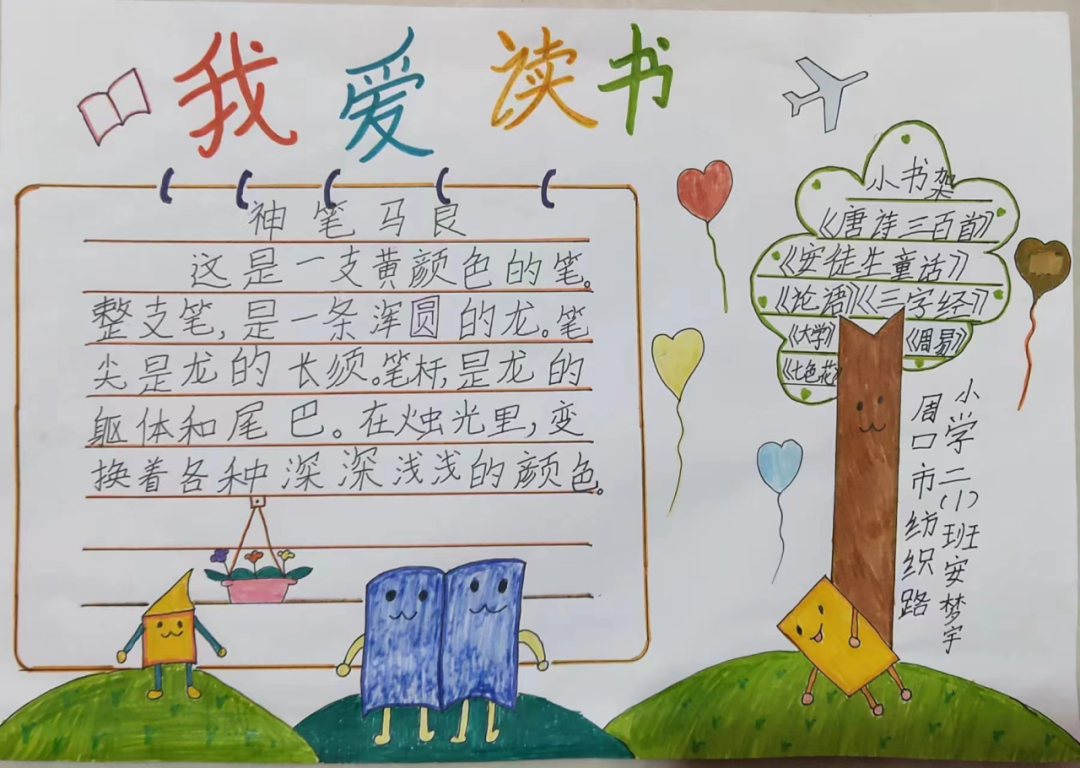 我爱读书
神笔马良
这是一支黄颜色的笔。
整支笔,是一条浑圆的龙。笔
尖是龙的长须。笔杆,是龙的
躯体和尾巴。在烛光里,变
换着各种深深浅浅的颜色。
小书架
《唐诗三百首》
《安徒生童话》
《论语》《三字经》
《大学》《周易》
《七色花
周口市纺织路
小学二(1)班安梦宇